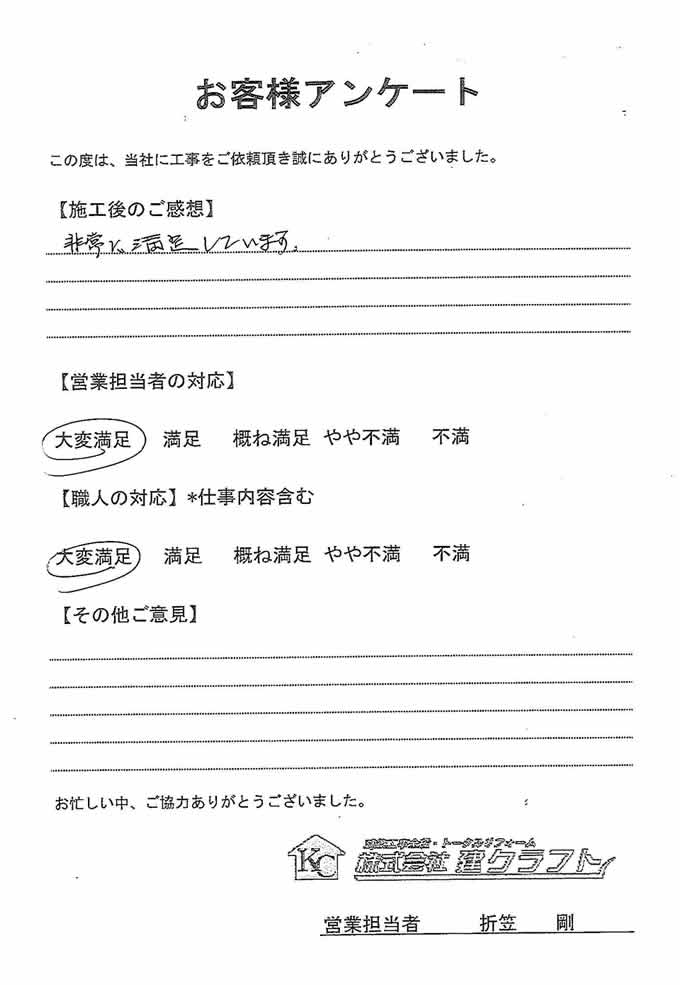 お客様アンケート
この度は、当社に工事をご依頼頂き誠にありがとうございました。
【施工後のご感想】
非常に満足しています。
【営業担当者の対応】
大変満足 満足 概ね満足 やや不満 不満
【職人の対応】*仕事内容含む
大変満足 満足 概ね満足 やや不満 不満
【その他ご意見】
お忙しい中、ご協力ありがとうございました。
KC
建築工事全般・トータルリフォーム
株式会社 建クラフト
営業担当者 折笠 剛